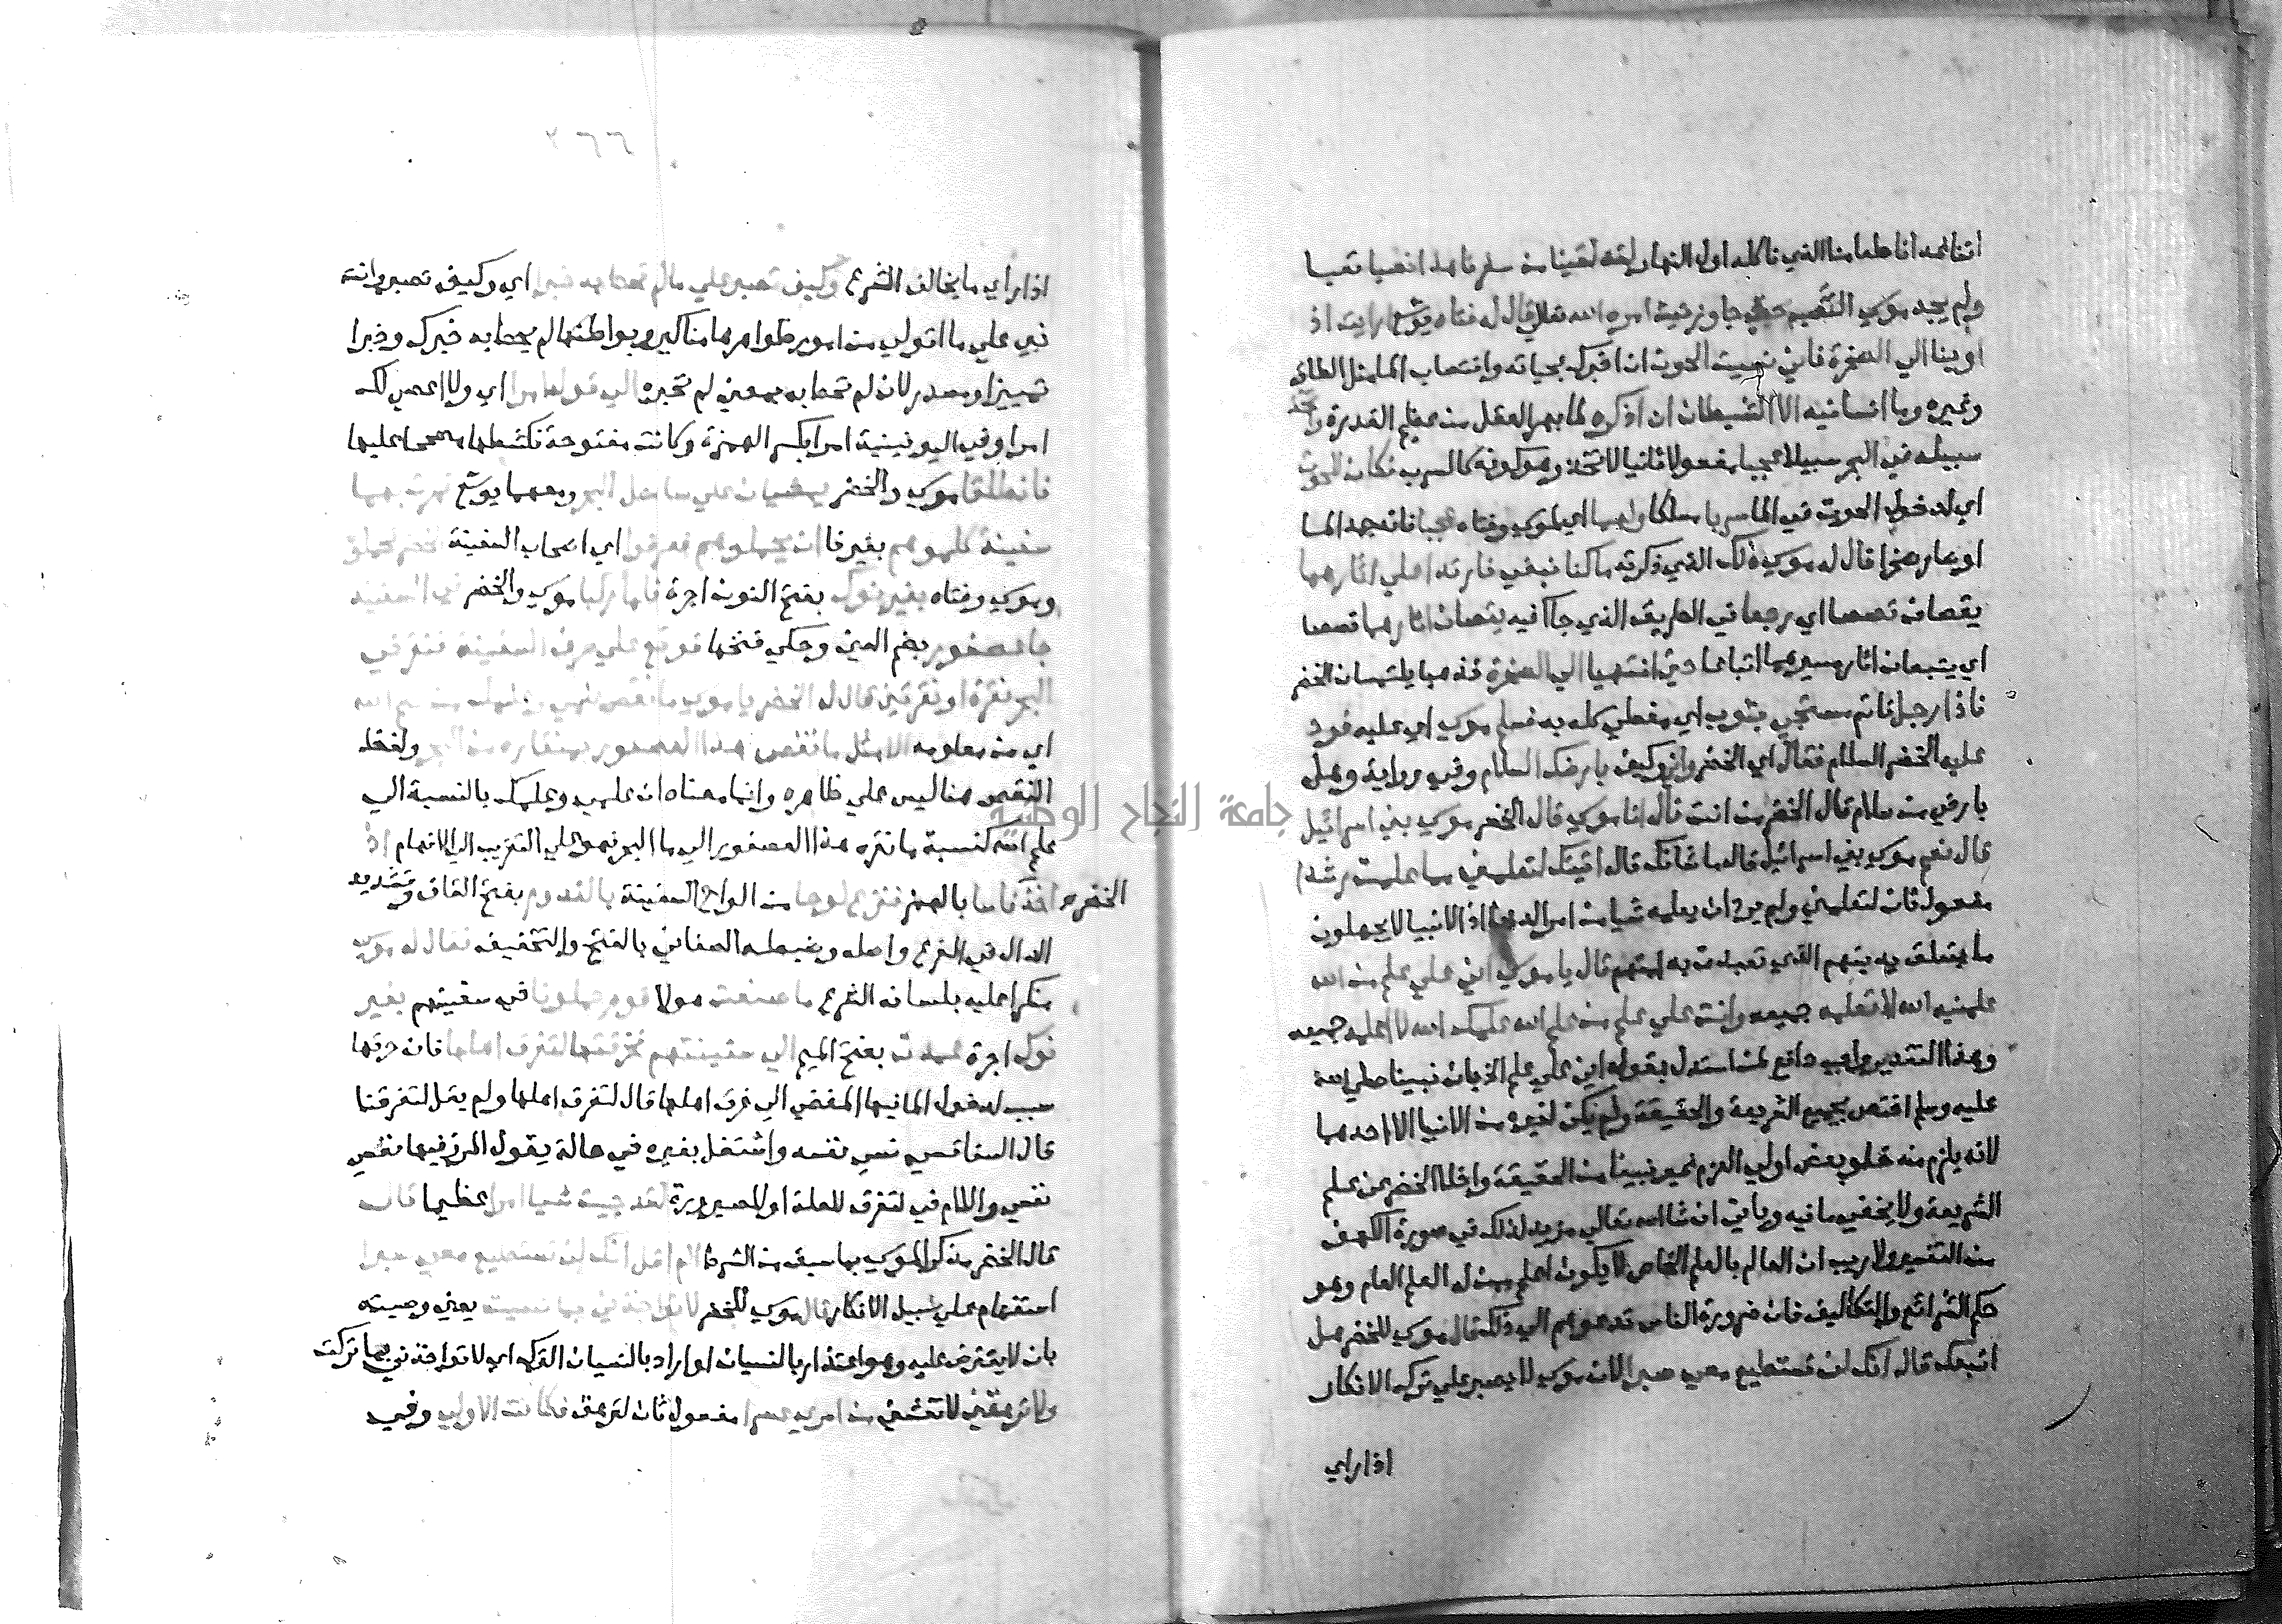 اتنا غدانا طعامنا الذي ناكله اول النهار لقد لقينا من سفرنا هذا نصبا تعبا
ولم يجد موسي النصب حتي جاوز حيث امره الله تعالي قال له فتاه يوشع ارايت اذ
اوينا الي الصخرة فاني نسيت الحوت ان اخبرك بحياته وانتصاب الما مثل الطاق
وغيره وما انسانيه الا الشيطان ان اذكره لما بهر العقل من عظم القدرة واتخذ
سبيله في البحر سبيلا عجبا مفعولا ثانيا لاتخذ وهو كونه كالسرب فكان للحوت
اي لدخول الحوت في الما سربا مسلكا ولهما اي لموسي وفتاه عجبا فانه جمد الما
او صار صخرا قال له موسي ذلك الذي ذكرته ما كنا نبغي فارتدا علي اثارهما
يقصان قصصا اي رجعا في الطريق الذي جاا فيه يقصان اثارهما قصصا
اي يتبعان اثار مسيرهما اتباعا حتي انتهيا الي الصخرة فذهبا يلتمسان الخضر
فاذا رجل نائم مسجي بثوب اي مغطي كله به فسلم موسي اي عليه فرد
عليه الخضر السلام فقال اي الخضر واني وكيف بارضك السلام وفي رواية وهل
بارضي من سلام قال الخضر من انت قال انا موسي قال الخضر موسي بني اسرائيل
قال نعم موسي بني اسرائيل قال ما شانك قال اتيتك لتعلمني مما علمت رشدا
مفعول ثان لتعلمني ولم يرد ان يعلمه شيا من امر الدين اذ الانبيا لا يجهلون
ما يتعلق بدينهم الذي تعبدت به امتهم قال يا موسي اني علي علم من الله
علمنيه الله لا تعلمه جميعه وانت علي علم من علم الله علمكه الله لا اعلمه جميعه
وهذا التقدير واجب دافع لمن استدل بقوله اني علي علم الخ بان نبينا صلي الله
عليه وسلم اختص بجميع الشريعة والحقيقة ولم يكن لغيره من الانبيا الا احدهما
لانه يلزم منه خلو بعض اولي العزم غير نبينا من الحقيقة واخلا الخضر عن علم
الشريعة ولا يخفي ما فيه وياتي ان شا الله تعالي مزيد لذلك في سورة الكهف
من التفسير ولا ريب ان العالم بالعلم الخاص لا يكون اعلم ممن له العلم العام وهو
حكم الشرائع والتكاليف فان ضرورة الناس تدعوهم الي ذلك قال موسي للخضر هل
اتبعك قال انك لن تستطيع معي صبرا لان موسي لا يصبر علي ترك الانكار
اذا راي
٢٦٦
اذا راي ما يخالف الشرع وكيف تصبر علي ما لم تحط به خبرا اي وكيف تصبر وانت
نبي علي ما اتولي من امور ظواهرها مناكير وبواطنها لم يحط به خبرك وخبرا
تمييز او مصدر لان لم تحط به بمعني لم تخبره الي قوله امرا اي ولا اعصي لك
امرا وفي اليونينية امرا بكسر الهمزة وكانت مفتوحة فكشطها مصححا عليها
فانطلقا موسي والخضر يمشيان علي ساحل البحر ومعهما يوشع فمرت بهما
سفينة كلموهم بغير فا ان يحملوهم فعرفوا اي اصحاب السفينة الخضر فحملوه
وموسي وفتاه بغير نول بفتح النون اجرة فلما ركبا موسي والخضر في السفينة
جا عصفور بضم العين وحكي فتحها فوقع علي حرف السفينة فنقر في
البحر نقرة او نقرتين قال له الخضر يا موسي ما نقص علمي وعلمك من علم الله
اي من معلومه الا مثل ما نقص هذا العصفور بمنقاره من البحر ولفظ
النقص هنا ليس علي ظاهره وانما معناه ان علمي وعلمك بالنسبة الي
علم الله كنسبة ما نقره هذا العصفور الي ما البحر فهو علي التقريب الي الافهام اذ
الخضر اخذ فاسا بالهمز فنزع لوحا من الواح السفينة بالقدوم بفتح القاف وتشديد
الدال في الفرع واصله وضبطه الصغاني بالفتح والتخفيف فقال له موسي
منكرا عليه بلسان الشرع ما صنعت هولا قوم حملونا في سفينتهم بغير
نول اجرة عمدت بفتح الميم الي سفينتهم فخرقتها لتغرق اهلها فان خرقها
سبب لدخول الما فيها المفضي الي غرق اهلها قال لتغرق اهلها ولم يقل لتغرقنا
قال السفاقصي نسي نفسه واشتغل بغيره في حالة يقول المرء فيها نفسي
نفسي واللام في لتغرق للعلة او للصيرورة لقد جيت شيا امرا عظيما قال
قال الخضر مذكرا لموسي بما سبق من الشرط الم اقل انك لن تستطيع معي صبرا
استفهام علي سبيل الانكار قال موسي للخضر لا تواخذني بما نسيت يعني وصيته
بان لا يعترض عليه وهو اعتذار بالنسيان او اراد بالنسيان الترك اي لا تواخذني بما تركت
ولا ترهقني لا تغشني من امري عسرا مفعول ثان لترهق فكانت الاولي وفي
جامعة النجاح الوطنية